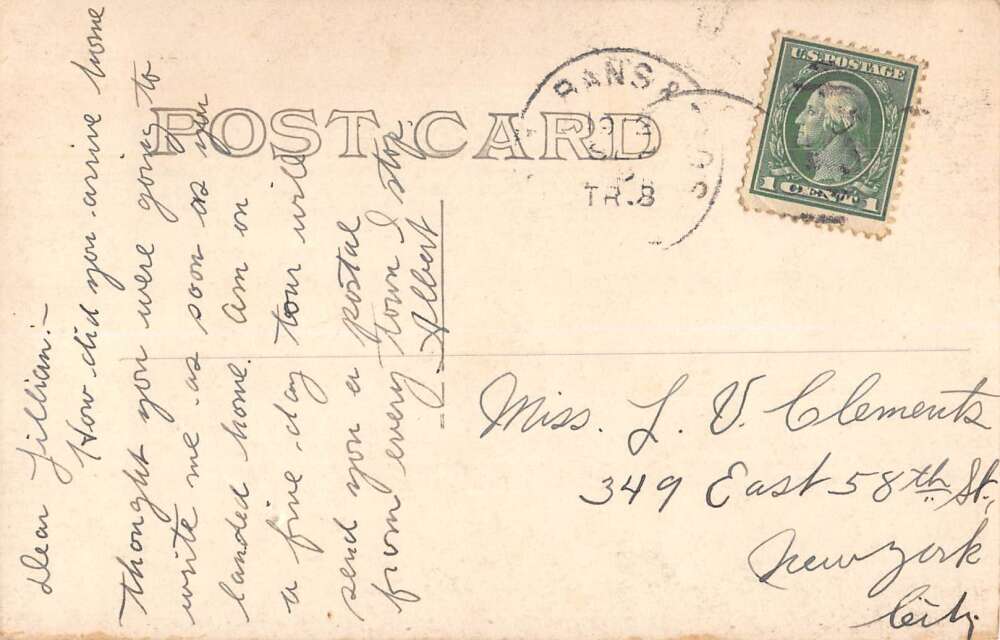 POST CARD
RANS &
TR.8
SOU
U.S. POSTAGE
1 CENT 1
Dear Lillian:-
How did you arrive home
thought you were going to
write me as soon as you
landed home. Am on
a fine day tour will
send you a postal
from every town I stop
Albert
Miss. L. V. Clements
349 East 58th St.,
New York
City